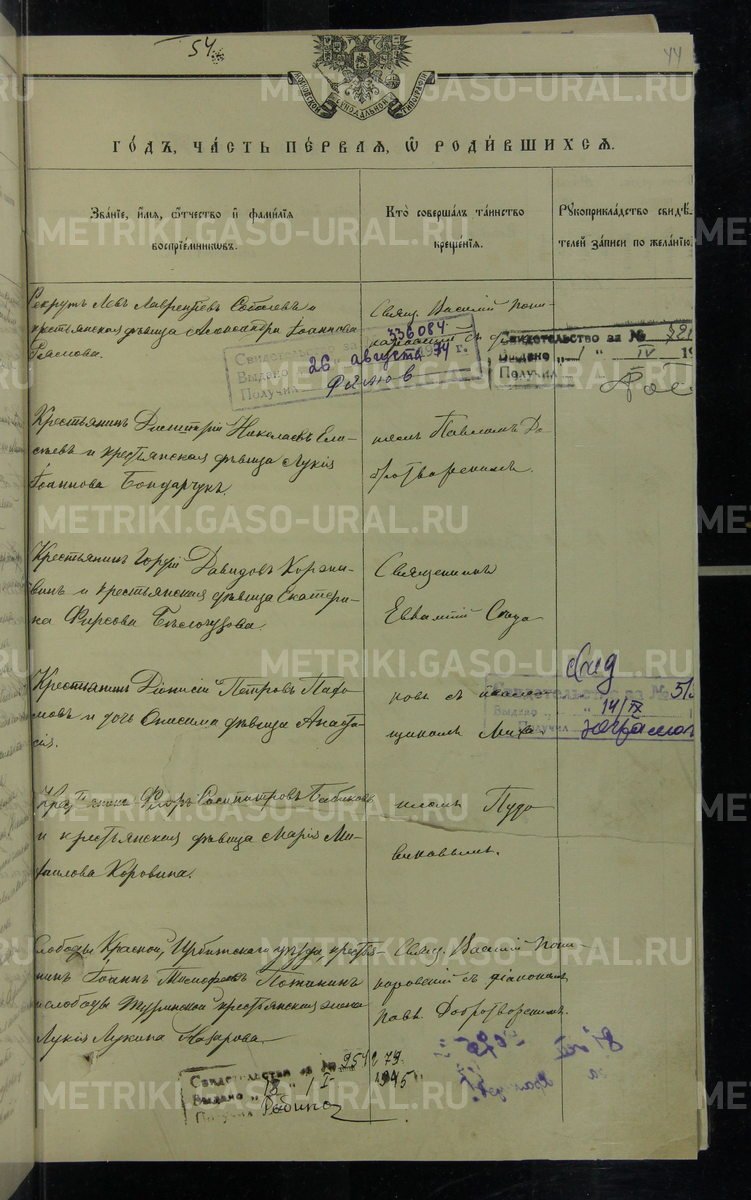 54.
44
МОСКОВСКОЙ СѴНОДАЛЬНОЙ ТѴПОГРАФІИ
ГОДЪ, ЧАСТЬ ПЕРВАЯ, Ѡ РОДИВШИХСЯ.
Званіе, имя, отчество и фамилія воспріемниковъ.
Кто совершалъ таинство крещенія.
Рукоприкладство свидѣтелей записи по желанію
Рекрутъ Левъ Лаврентьевъ Соболевъ и
крестьянская дѣвица Александра Іоаннова
Свящ. Василій Пони-
съ
Свидетельство за 336084
Выдано 26 августа 1974 г.
Получил
Свидетельство за № 721
Выдано „1 “ IV 19
Получил
Крестьянинъ Димитрій Николаевъ Ели-
сѣевъ и крестьянская дѣвица Лукія
Іоаннова Бондарчукъ.
номъ Павломъ До-
бротворскимъ.
Крестьянинъ Гордій Давидовъ Корзни-
винъ и крестьянская дѣвица Екатери-
на Фирсова Бѣлоглазова.
Священникъ
Евѳимій
Крестьянинъ Діонисій Петровъ Пахо-
мовъ и дочь Онисима дѣвица Анаста-
сія.
ковъ съ псалом-
щикомъ Миха-
Свид
Свидетельство за № 51
Выдано 14/IX
Получил
Крестьянинъ Флоръ Сосипатровъ Бабиковъ
и крестьянская дѣвица Марія Ми-
хаилова Коровина.
иломъ Пудо
виковымъ.
Слободы Красной, Ирбитскаго уѣзда, крестья-
нинъ Іоаннъ Тимофеевъ Потанинъ
и слободы Туринской крестьянская жена
Лукія Лукина Назарова.
Свящ. Василій Пони-
ровскій съ діакономъ
Павл. Добротворскимъ.
Свидетельство за № 951279
Выдано „18 “ I 1945
Получил
METRIKI.GASO-URAL.RU